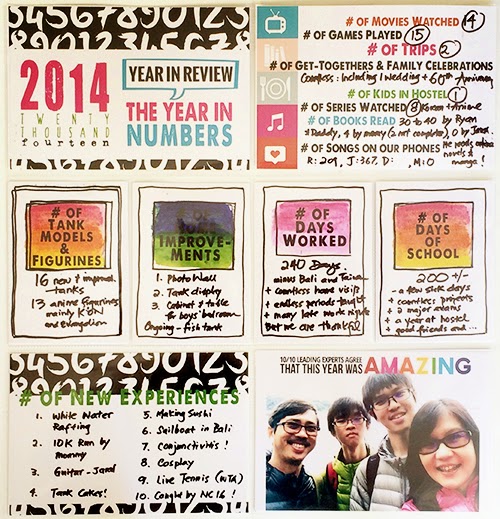 2014
TWENTY
THOUSAND
fourteen
YEAR IN REVIEW
THE YEAR IN
NUMBERS
# OF MOVIES WATCHED 14
# OF GAMES PLAYED 15
# OF TRIPS 2
# OF GET-TOGETHERS & FAMILY CELEBRATIONS
Countless: Including 1 Wedding + 60th Anniversary
# OF KIDS IN HOSTEL 1
# OF SERIES WATCHED 8 Korean + Anime
# OF BOOKS READ 30 to 40 by Ryan
& Daddy, 4 by mommy (2 not complete), 0 by Jarod.
He reads online novels & manga!
# OF SONGS ON OUR PHONES
R: 209, J: 367, D: M: 0
# OF
TANK
MODELS
&
FIGURINES
16 new & improved
tanks
13 anime figurines
mainly
and evangelion
# OF
IMPROVE-
MENTS
1. Photo Wall
2. Tank display
3. Cabinet & table
for boys' bedroom
Ongoing - fish tank
# OF
DAYS
WORKED
240 Days
minus Bali and Taiwan
+ countless home visits
+ endless periods taught
+ many late work nights
But we are thankful
# OF
DAYS
OF
SCHOOL
200 +/-
- a few sick days
+ countless projects
+ 2 major exams
+ a year at hostel
+ good friends and ...
# OF NEW EXPERIENCES
1. White Water
Rafting
2. 10K Run by
mommy
3. Guitar - Jarod
4. Tank Cakes!
5. Making Sushi
6. Sailboat in Bali
7. Conjunctivitis!
8. Cosplay
9. Live Tennis (WTA)
10. Caught by NC16!
10/10 LEADING EXPERTS AGREE
THAT THIS YEAR WAS AMAZING